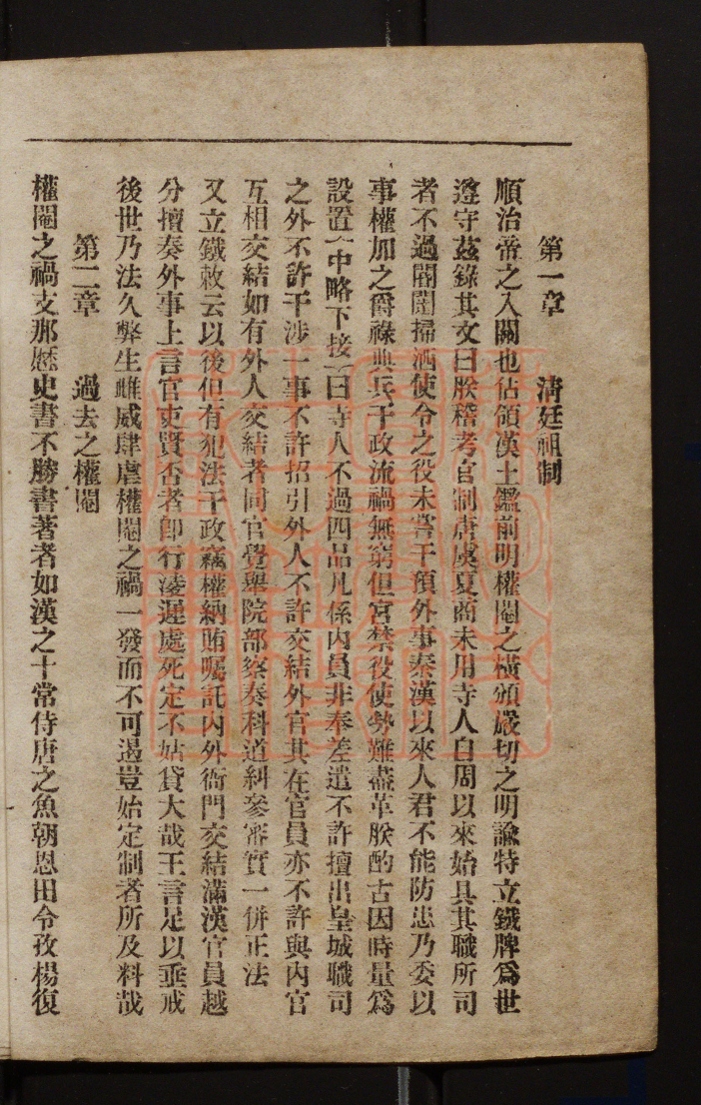 第一章　清廷祖制
順治帝之入關也佔領漢土鑑前明權閹之橫頒嚴切之明諭特立鐵牌爲世
遵守茲錄其文曰朕稽考官制唐虞夏商未用寺人自周以來始具其職所司
者不過閽闥掃洒使令之役未嘗干預外事秦漢以來人君不能防患乃委以
事權加之爵祿典兵干政流禍無窮但宮禁役使勢難盡革朕酌古因時量爲
設置(中略下接)曰寺人不過四品凡係內員非奉差遣不許擅出皇城職司
之外不許干涉一事不許招引外人不許交結外官其在官員亦不許與內官
互相交結如有外人交結者同官覺舉院部察奏科道糾參審實一併正法
又立鐵敕云以後但有犯法干政竊權納賄囑託內外衙門交結滿漢官員越
分擅奏外事上言官吏賢否者卽行凌遲處死定不姑貸大哉王言足以垂戒
後世乃法久弊生雌威肆虐權閹之禍一發而不可遏豈始定制者所及料哉
第二章　過去之權閹
權閹之禍支那歷史書不勝書著者如漢之十常侍唐之魚朝恩田令孜楊復